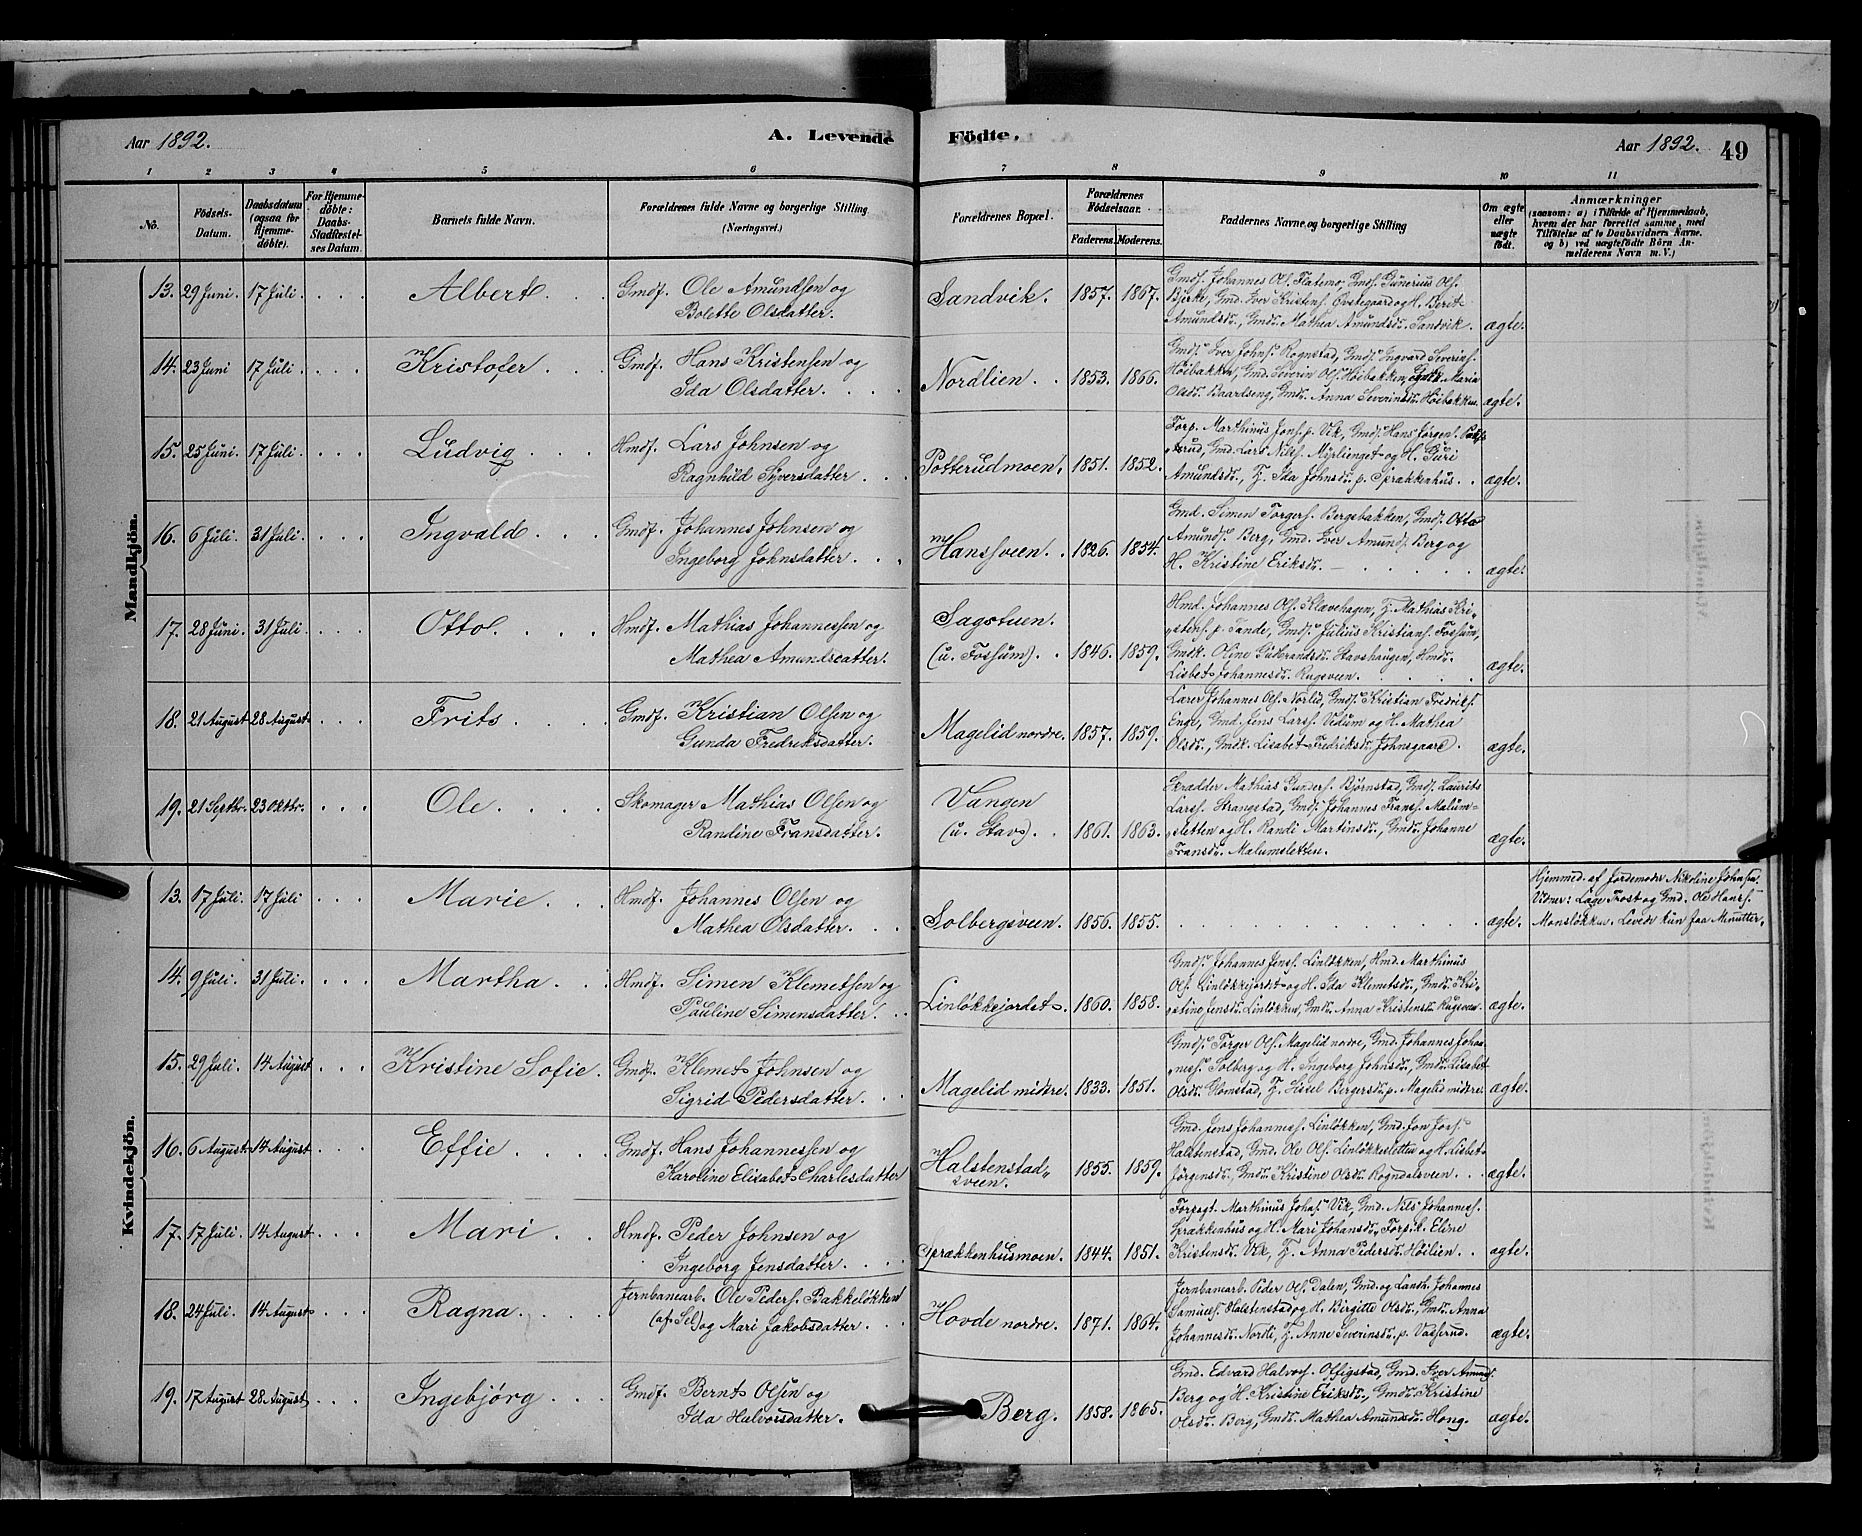 Aar 1892.
A. Levende Födte.
Aar 1892. 49
1 2 3 4 5 6 7 8 9 10 11
No.
Födsels-
Datum.
Daabsdatum
(ogsaa for
Hjemme-
döbte).
For Hjemme-
döbte:
Daabs-
Stadfæstel-
ses Datum.
Barnets fulde Navn.
Forældrenes fulde Navne og borgerlige Stilling
(Næringsvei.)
Forældrenes Bopæl.
Forældrenes
Födselsaar.
Faderens. Moderens.
Faddernes Navne og borgerlige Stilling
Om ægte
eller
uægte
födt.
Anmærkninger
(saasom: a) i Tilfælde af Hjemmedaab,
hvem der har forrettet samme, med
Tilföielse af to Daabsvidners Navne,
og b) ved uægtefödte Börn An-
melderens Navn m. V.)
Mandkjön.
13. 29 Juni. 17 Juli. Albert. Gmdf. Ole Amundsen og
Bolette Olsdatter.
Sandvik. 1857. 1867.
Gmdf. Johannes Ols. Flatemo, Gmds. Gunerius Ols.
Bjerke, Gmd. Iver Kristens. Evstegaard og H. Berit
Amundsdr., Gmdr. Mathea Amundsdr. Sandvik. ægte.
14. 23 Juni 17 Juli. Kristofer Gmdf. Hans Kristensen og
Ida Olsdatter.
Nordlien. 1853. 1866.
Gmds. Iver Johns. Rognstad, Gmds. Ingvard Severins.
Höibakken, Gmd. Severin Ols. Höibakken, Maria
Olsdr. Baardseng, Gmdr. Anna Severinsdr. Höibakken. ægte.
15. 25 Juni. 17 Juli. Ludvig Hmdf. Lars Johnsen og
Ragnhild Syversdatter
Potterudmoen. 1851. 1852.
Forp. Marthinus Jons. p. Vik, Gmds. Hans Jörgen.
Gmd. Lars Nils. Myrlinget og H. Guri
Amundsdr., T. Ida Johnsdr. p. Sprækkenhus. ægte.
16. 6 Juli. 31 Juli. Ingvald Gmdf. Johannes Johnsen og
Ingeborg Johnsdatter.
Hansveen. 1826. 1854.
Gmd. Simen Torgers. Bergsbakken, Gmds. Otto
Amunds. Berg, Gmd. Iver Amunds. Berg og
H. Kristine Eriksdr. ægte.
17. 28 Juni. 31 Juli. Otto. Hmdf. Mathias Johannessen og
Mathea Amundsdatter.
Sagstuen.
(u. Fossum). 1846. 1859.
Hmd. Johannes Ols. Klævehagen, T. Mathias Kri-
stens. p. Tande, Gmds. Julius Kristians. Fossum,
Gmdk. Oline Gulbrandsdr. Stavshaugen, Hmdr.
Lisbet Johannesdr. Rugsveen. ægte.
18. 21 August 28 August Frits Gmdf. Kristian Olsen og
Gunda Fredriksdatter.
Magelid nordre. 1857. 1859.
Lærer Johannes Ols. Norlid, Gmds. Kristian Fredriks.
Enge, Gmd. Jens Lars. Vidum og H. Mathea
Olsdr., Gmdk. Lisabet Fredriksdr. Johnsgaard. ægte.
19. 21 Septbr. 23 Oktbr. Ole. Skomager Mathias Olsen og
Randine Fransdatter.
Vangen
(u. Stav). 1861. 1863.
Skrædder Mathias Gunders. Bjørnstad, Gmds. Laurits
Lars. Strangstad, Gmds. Johannes Frans. Malum-
sletten og H. Randi Martinsdr., Gmdr. Johanne
Fransdr. Malumsletten. ægte.
Kvindekjön.
13. 17 Juli. 17 Juli Marie. Hmdf. Johannes Olsen og
Mathea Olsdatter.
Solbergsveen. 1856. 1855. ægte.
Hjemmed. af Jordemoder Nikoline Johnsen.
Vidner: Lage Trost og Gmd. Ole Hans.
Monsløkken. Levede kun faa Minutter.
14. 9 Juli. 31 Juli. Martha Hmdf. Simen Klemetsen og
Pauline Simensdatter.
Linløkkjordet. 1860. 1858.
Gmds. Johannes Jens. Linløkken, Hmd. Marthinus
Ols. Linløkkjordet og H. Ida Klemetsdr., Gmdr. Kri-
stine Jensdr. Linløkken, Gmdr. Anna Kristensdr. Rugsveen. ægte.
15. 29 Juli. 14 August Kristine Sofie. Gmdf. Klemet Johnsen og
Sigrid Pedersdatter.
Magelid midtre. 1833. 1851.
Gmds. Torger Ols. Magelid nordre, Gmd. Johannes Johan-
nes. Solberg og H. Ingeborg Johnsdr., Gmdr. Lisabet
Olsdr. Glomstad, T. Sissel Bergersdr. p. Magelid midtre. ægte.
16. 6 August 14 August Effie Gmdf. Hans Johannessen og
Karoline Elisabet Charlesdatter
Halstenstad
sveen. 1855. 1859.
Gmd. Jens Johannes. Linløkken, Gmd. Jon Jons.
Halstenstad, Gmd. Ole Ols. Linløkkesletten og H. Lisbet
Jörgensdr., Gmdr. Kristine Olsdr. Rogndalsveen. ægte.
17. 17 Juli. 14 August Mari Hmdf. Peder Johnsen og
Ingeborg Jensdatter.
Sprækkenhusmoen. 1844. 1851.
Forpagt. Marthinus Johs. Vik, Gmd. Nils Johannes.
Sprækkenhus og H. Mari Johansdr., Forp.k. Eline
Kristensdr. Vik, T. Anna Pedersdr. Höilien. ægte.
18. 24 Juli. 14 August Ragna. Jernbanearb. Ole Peders. Bakkeløkken
(af Sel) og Mari Jakobsdatter.
Hovde nordre. 1871. 1864.
Jernbanearb. Peder Ols. Dalen, Gmd. og Landh. Johannes
Samuels. Halstenstad og H. Birgitte Olsdr., Gmdr. Anna
Johannesdr. Nordli, T. Anne Severinsdr. p. Vasrud. ægte.
19. 17 August 28 August Ingebjørg Gmdf. Bernt Olsen og
Ida Halvorsdatter.
Berg. 1858. 1865.
Gmd. Edvard Halvors. Offigstad, Gmd. Iver Amunds.
Berg og H. Kristine Eriksdr., Gmdr. Kristine
Olsdr. Berg, Gmdr. Mathea Amundsdr. Hong. ægte.